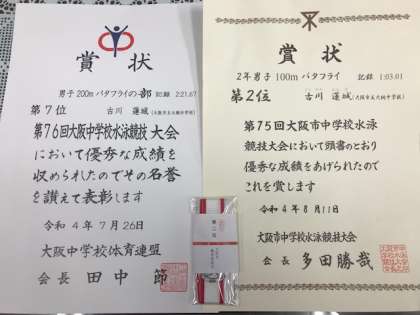 賞状
男子200m バタフライの部 記録 2:21.67
第7位 古川 蓮城
第76回大阪中学校水泳競技大会
において優秀な成績を
収められたのでその名誉
を讃えて表彰します
令和4年7月26日
大阪中学校体育連盟
会長 田中 節
賞状
2年男子 100m バタフライ 記録 1:03.01
第2位 古川 蓮城
第75回大阪市中学校水泳
競技大会において頭書のとおり
優秀な成績をあげられたので
これを賞します
令和4年8月11日
大阪市中学校水泳競技大会
会長 多田勝哉